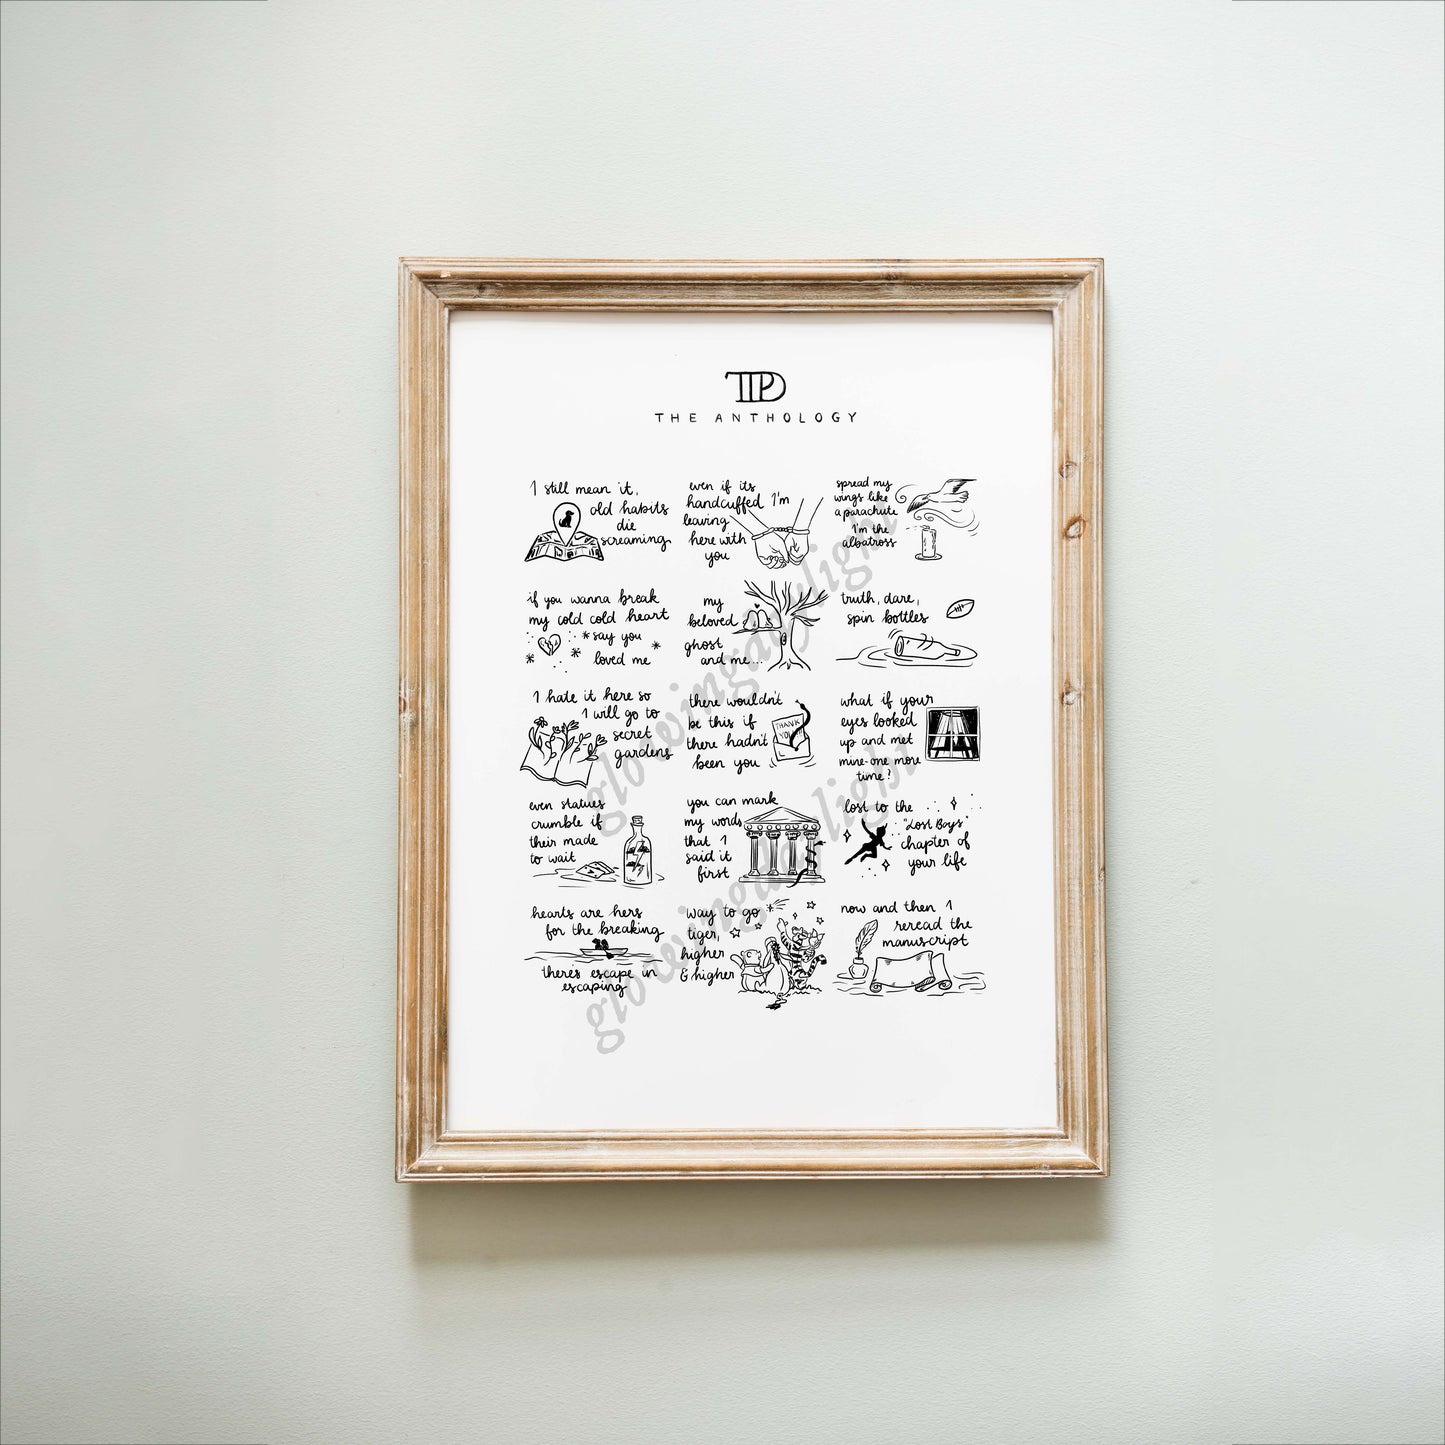 TTPD
THE ANTHOLOGY
I still mean it,
old habits
die
screaming
even if its
handcuffed I'm
leaving
here with
you
spread my
wings like
a parachute
I'm the
albatross
if you wanna break
my cold cold heart
*say you
loved me
my
beloved
ghost
and me...
truth, dare,
spin bottles
I hate it here so
I will go to
secret
gardens
there wouldn't
be this if
there hadn't
been you
THANK
YOU
what if your
eyes looked
up and met
mine-one more
time?
even statues
crumble if
their made
to wait
you can mark
my words
that I
said it
first
lost to the
"Lost Boys"
chapter of
your life
hearts are hers
for the breaking
there's escape in
escaping
way to go
tiger,
higher
& higher
now and then I
reread the
manuscript
glowingdaylight
glowingdaylight